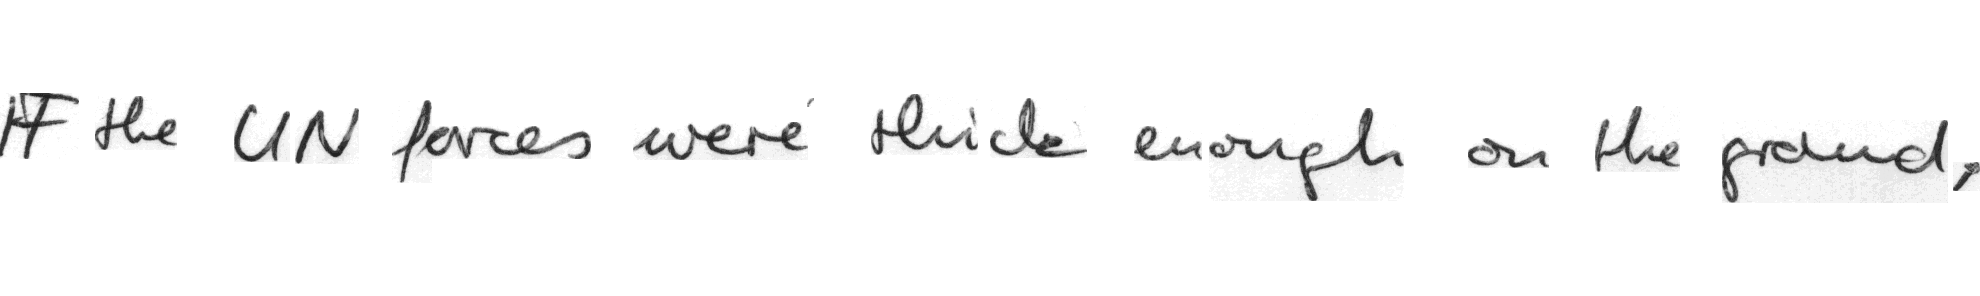 IF the UN forces were thick enough on the ground,